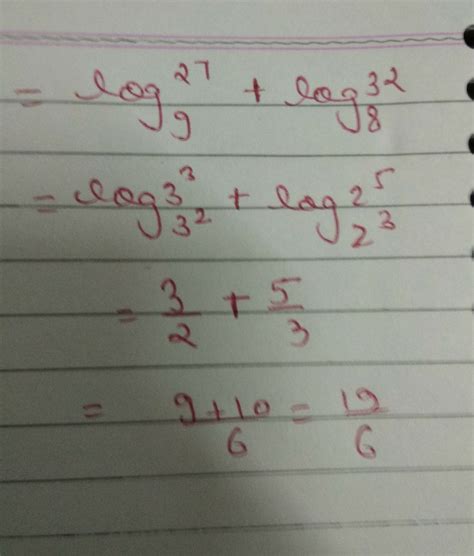 = log₉²⁷ + log₈³²
= log 3³ ₃² + log 2⁵ ₂³
= 3/2 + 5/3
= 9+10/6 = 19/6